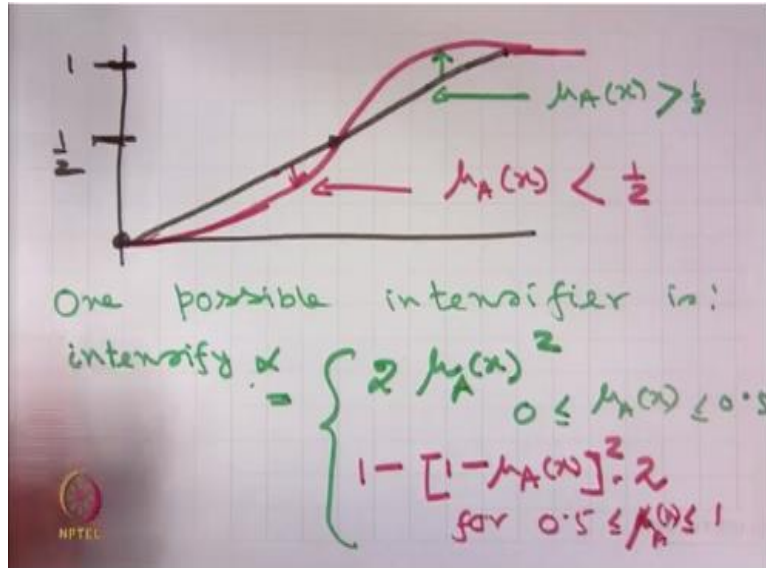 1
1/2
μA(x) > 1/2
μA(x) < 1/2
One possible intensifier is:
intensify α = { 2 μA(x)²
0 ≤ μA(x) ≤ 0.5
1 - [1 - μA(x)]². 2
for 0.5 ≤ μA(x) ≤ 1
NPTEL